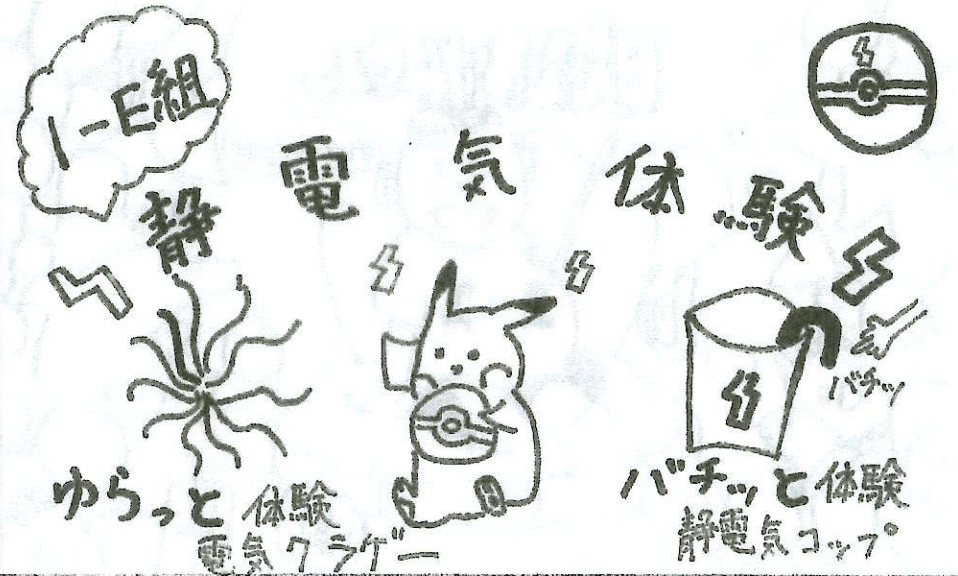 1-E組
静電気体験
バチッ
ゆらっと体験
電気クラゲー
バチッと体験
静電気コップ